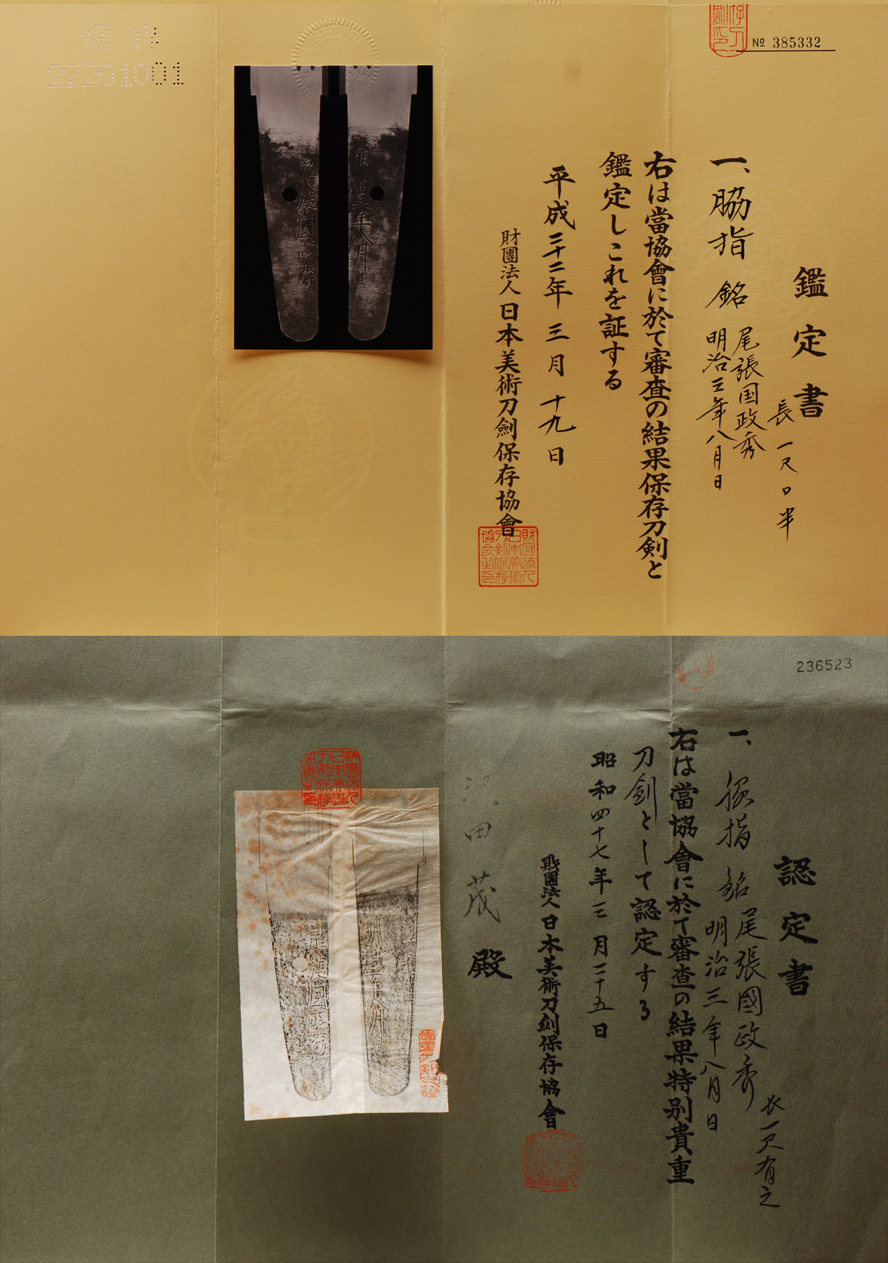 № 385332
鑑定書
一、脇指 銘 尾張国政秀
明治三年八月日
長 一尺〇半
右は當協會に於て審査の結果保存刀剣と
鑑定しこれを証する
平成二十二年 三月 十九日
財團法人 日本美術刀劍保存協會
22301001
236523
認定書
一、脇指 銘 尾張國政秀
明治三年八月日
長一尺有之
右は當協會に於て審査の結果特別貴重
刀剣として認定する
昭和四十七年三月二十五日
財團法人 日本美術刀剣保存協會
田茂 殿